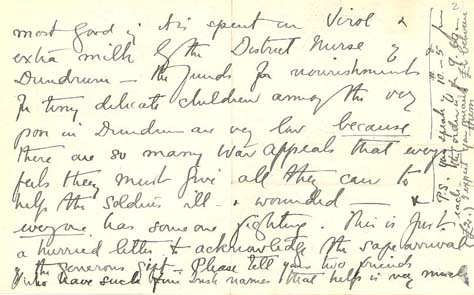 most good if it is spent on Virol &
extra milk by the District Nurse of
Dundrum — the funds for nourishments
for tiny delicate children among the very
poor in Dundrum are very low because
there are so many War appeals that everyone
feels they must give all they can to
help the soldiers ill & wounded — &
everyone has someone fighting. This is just
a hurried letter to acknowledge the safe arrival
of the generous gift — Please tell your two friends
who have such fine Irish names that help is very much
P.S.
2